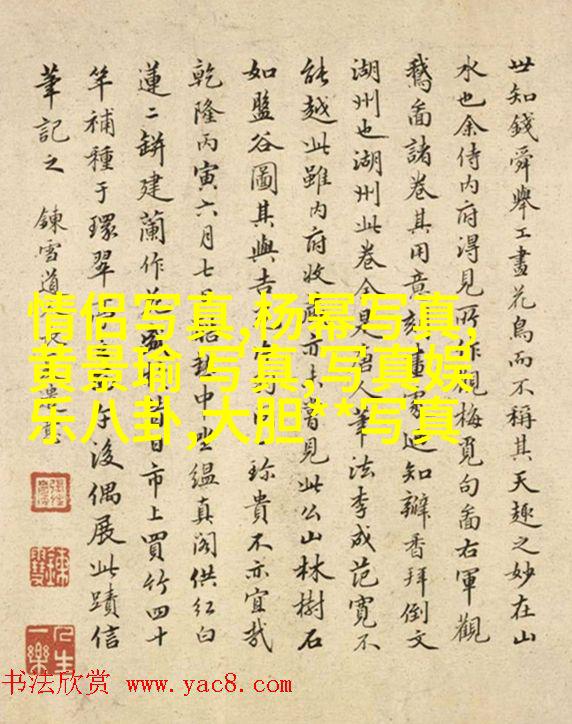 世知錢舜舉工畫花鳥而不稱其天趣之妙在山
水也余侍內府得見所作觀梅覓句畵右軍觀
鵝畵諸卷其用意刻畫家知瓣香拜倒文
湖州也湖州此卷全是唐人筆法李成范寬不
能越此雖內府收藏亦未曾見此公山林樹石
如盤谷圖其與吉珍貴不亦宜哉
乾隆丙寅六月七中坐緼真閣供紅白
蓮二缾建蘭作花日市上買竹四十
竿補種于環翠午後偶展此蹟信
筆記之 鍊雪道
人生一樂
情侣写真,杨幂写真,
黄景瑜 写真,写真娱
乐八卦,大胆**写真
书法欣赏 www.yac8.com